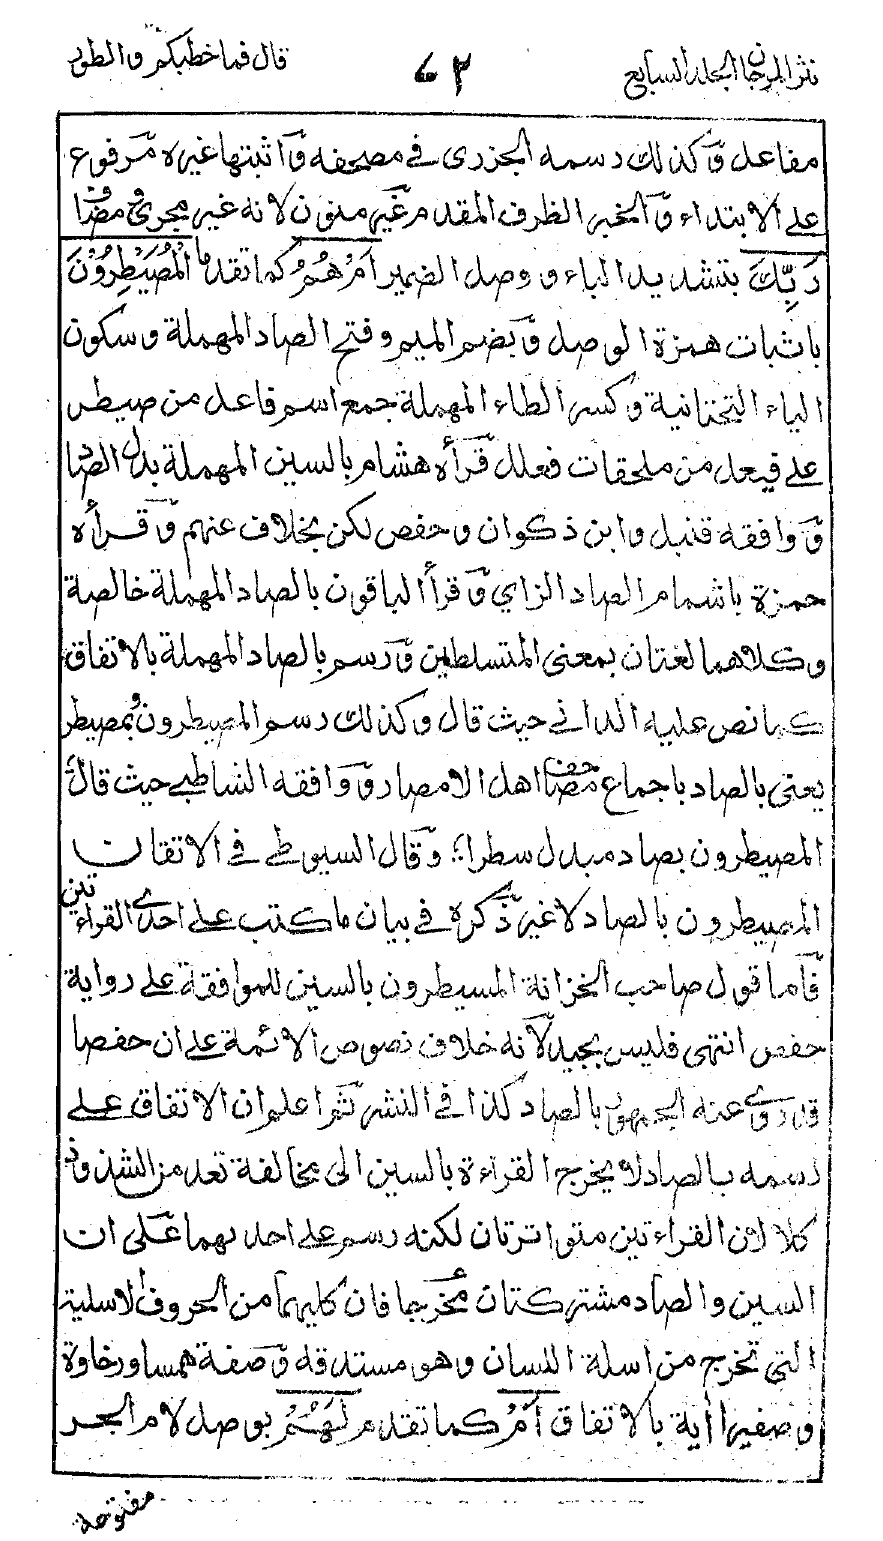 نثر المرجان المجلد السابع ٦٢ قال فما خطبكم والطور
مفاعل وكذلك رسمه الجزرى في مصحفه وأثبتها غيره مرفوع
على الابتداء والخبر الظرف المقدم غير منون لانه غير مجرى ومضاف
رَبِّكَ بتشديد الباء و وصل الضمير أَمْ هُمُ كما تقدما الْمُصَيْطِرُوْنَ
باثبات همزة الوصل وبضم الميم وفتح الصاد المهملة وسكون
الياء التحتانية وكسر الطاء المهملة جمع اسم فاعل من صيطر
على فيعل من ملحقات فعلل قرأه هشام بالسين المهملة بدل الصاد
ووافقه قنبل وابن ذكوان وحفص لكن بخلاف عنهم وقرأه
حمزة باشمام الصاد الزاي وقرأ الباقون بالصاد المهملة خالصة
وكلاهما لغتان بمعنى المتسلطين ورسم بالصاد المهملة بالاتفاق
كما نص عليه الداني حيث قال وكذلك رسم المصيطرون وبمصيطر
يعنى بالصاد باجماع مصاحف اهل الامصار ووافقه الشاطبي حيث قال ع
المصيطرون بصاد مبدل سطرا؛ وقال السيوطي في الاتقان
المصيطرون بالصاد لا غير ذكره في بيان ما كتب على احدى القراءتين
فأما قول صاحب الخزانة المسيطرون بالسين للموافقة على رواية
حفص انتهى فليس بجيد لأنه خلاف نصوص الائمة على ان حفصا
قد روى عنه الجمهور بالصاد كذا في النشر ثم اعلم ان الاتفاق على
رسمه بالصاد لا يخرج القراءة بالسين الى مخالفة تعد من الشذوذ
كلا لان القراءتين متواترتان لكنه رسم على احدىهما على ان
السين والصاد مشتركتان مخرجا فان كليهما من الحروف الاسلية
التى تخرج من اسلة اللسان وهو مستدقه وصفة همسا ورخاوة
وصفيرا أية بالاتفاق أَمْ كما تقدم لَهُمْ بوصل لام الجر
مفتوحة